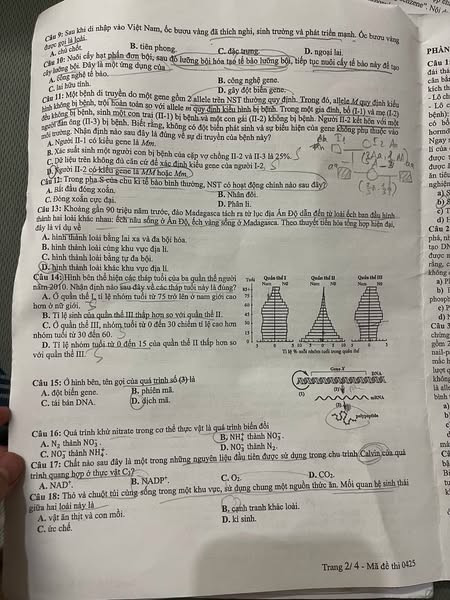 Câu 9: Sau khi di nhập vào Việt Nam, ốc bươu vàng đã thích nghi, sinh trưởng và phát triển mạnh. Ốc bươu vàng
được gọi là loài
A. chủ chốt. B. tiên phong. C. đặc trưng. D. ngoại lai.
Câu 10: Nuôi cấy hạt phấn đơn bội, sau đó lưỡng bội hóa tạo tế bào lưỡng bội, tiếp tục nuôi cấy tế bào này để tạo
cây lưỡng bội. Đây là một ứng dụng của
A. công nghệ tế bào. B. công nghệ gene.
C. lai hữu tính. D. gây đột biến gene.
Câu 11: Một bệnh di truyền do một gene gồm 2 allele trên NST thường quy định. Trong đó, allele M quy định kiểu
hình không bị bệnh, trội hoàn toàn so với allele m quy định kiểu hình bị bệnh. Trong một gia đình, bố (I-1) và mẹ (I-2)
đều không bị bệnh, sinh một con trai (II-1) bị bệnh và một con gái (II-2) không bị bệnh. Người II-2 kết hôn với một
người đàn ông (II-3) bị bệnh. Biết rằng, không có đột biến phát sinh và sự biểu hiện của gene không phụ thuộc vào
môi trường. Nhận định nào sau đây là đúng về sự di truyền của bệnh này?
A. Người II-1 có kiểu gene là Mm.
B. Xác suất sinh một người con bị bệnh của cặp vợ chồng II-2 và II-3 là 25%.
C. Dữ liệu trên không đủ căn cứ để xác định kiểu gene của người I-2.
D. Người II-2 có kiểu gene là MM hoặc Mm.
Câu 12: Trong pha S của chu kì tế bào bình thường, NST có hoạt động chính nào sau đây?
A. Bắt đầu đóng xoắn. B. Nhân đôi.
C. Đóng xoắn cực đại. D. Phân li.
Câu 13: Khoảng gần 90 triệu năm trước, đảo Madagasca tách ra từ lục địa Ấn Độ dẫn đến từ loài ếch ban đầu hình
thành hai loài khác nhau: ếch nâu sống ở Ấn Độ, ếch vàng sống ở Madagasca. Theo thuyết tiến hóa tổng hợp hiện đại,
đây là ví dụ về
A. hình thành loài bằng lai xa và đa bội hóa.
B. hình thành loài cùng khu vực địa lí.
C. hình thành loài bằng tự đa bội.
D. hình thành loài khác khu vực địa lí.
Câu 14: Hình bên thể hiện các tháp tuổi của ba quần thể người
năm 2010. Nhận định nào sau đây về các tháp tuổi này là đúng?
A. Ở quần thể I, tỉ lệ nhóm tuổi từ 75 trở lên ở nam giới cao
hơn ở nữ giới.
B. Tỉ lệ sinh của quần thể III thấp hơn so với quần thể II.
C. Ở quần thể III, nhóm tuổi từ 0 đến 30 chiếm tỉ lệ cao hơn
nhóm tuổi từ 30 đến 60.
D. Tỉ lệ nhóm tuổi từ 0 đến 15 của quần thể II thấp hơn so
với quần thể III.
Tuổi Quần thể I Quần thể II Quần thể III
Nam Nữ Nam Nữ Nam Nữ
Tỉ lệ % mỗi nhóm tuổi trong quần thể
Câu 15: Ở hình bên, tên gọi của quá trình số (3) là
A. đột biến gene. B. phiên mã.
C. tái bản DNA. D. dịch mã.
Gene X
DNA
(1) (2)
mRNA
(3)
polypeptide
Câu 16: Quá trình khử nitrate trong cơ thể thực vật là quá trình biến đổi
A. N₂ thành NO₃⁻. B. NH₄⁺ thành NO₃⁻.
C. NO₃⁻ thành NH₄⁺. D. NO₃⁻ thành N₂.
Câu 17: Chất nào sau đây là một trong những nguyên liệu đầu tiên được sử dụng trong chu trình Calvin của quá
trình quang hợp ở thực vật C₃?
A. NAD⁺. B. NADP⁺. C. O₂. D. CO₂.
Câu 18: Thỏ và chuột túi cùng sống trong một khu vực, sử dụng chung một nguồn thức ăn. Mối quan hệ sinh thái
giữa hai loài này là
A. vật ăn thịt và con mồi. B. cạnh tranh khác loài.
C. ức chế. D. kí sinh.
Trang 2/ 4 - Mã đề thi 0425
PHẦN